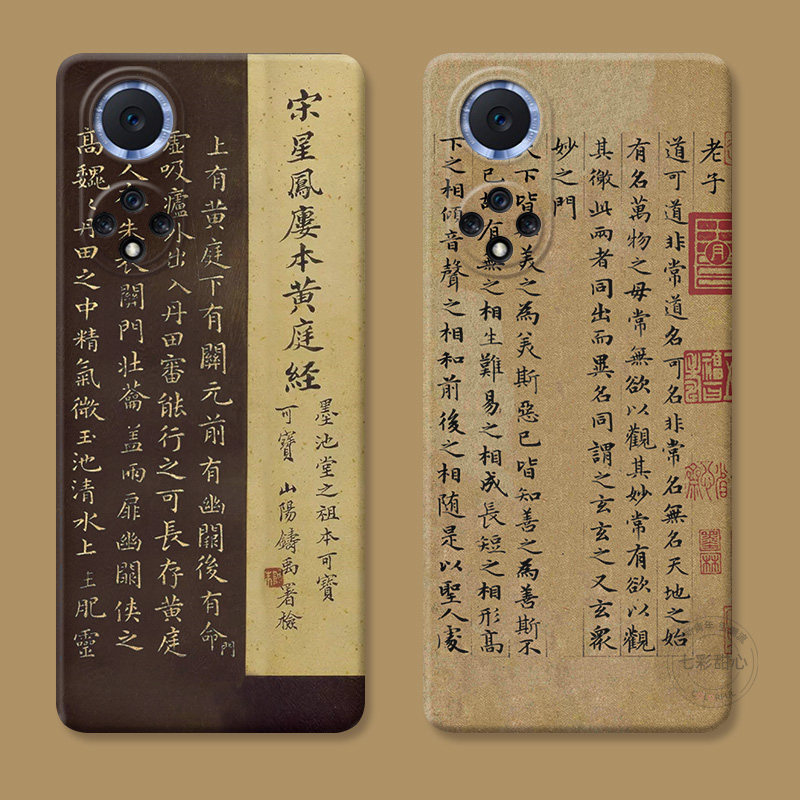 宋星鳳廔本黃庭經
墨池堂之祖本可寶
可寶 山陽鑄禹署檢
上有黃庭下有關元前有幽闕後有命門
吸廬外出入丹田審能行之可長存黃庭
人 朱衣關門壯籥蓋兩扉幽闕俠之
高魏〻丹田之中精氣微玉池清水上生肥靈
老子
道可道非常道名可名非常名無名天地之始
有名萬物之母常無欲以觀其妙常有欲以觀
其徼此兩者同出而異名同謂之玄玄之又玄衆
妙之門
下皆 美之為美斯惡已皆知善之為善斯不
已故有無之相生難易之相成長短之相形高
下之相傾音聲之相和前後之相随是以聖人處
七彩甜心